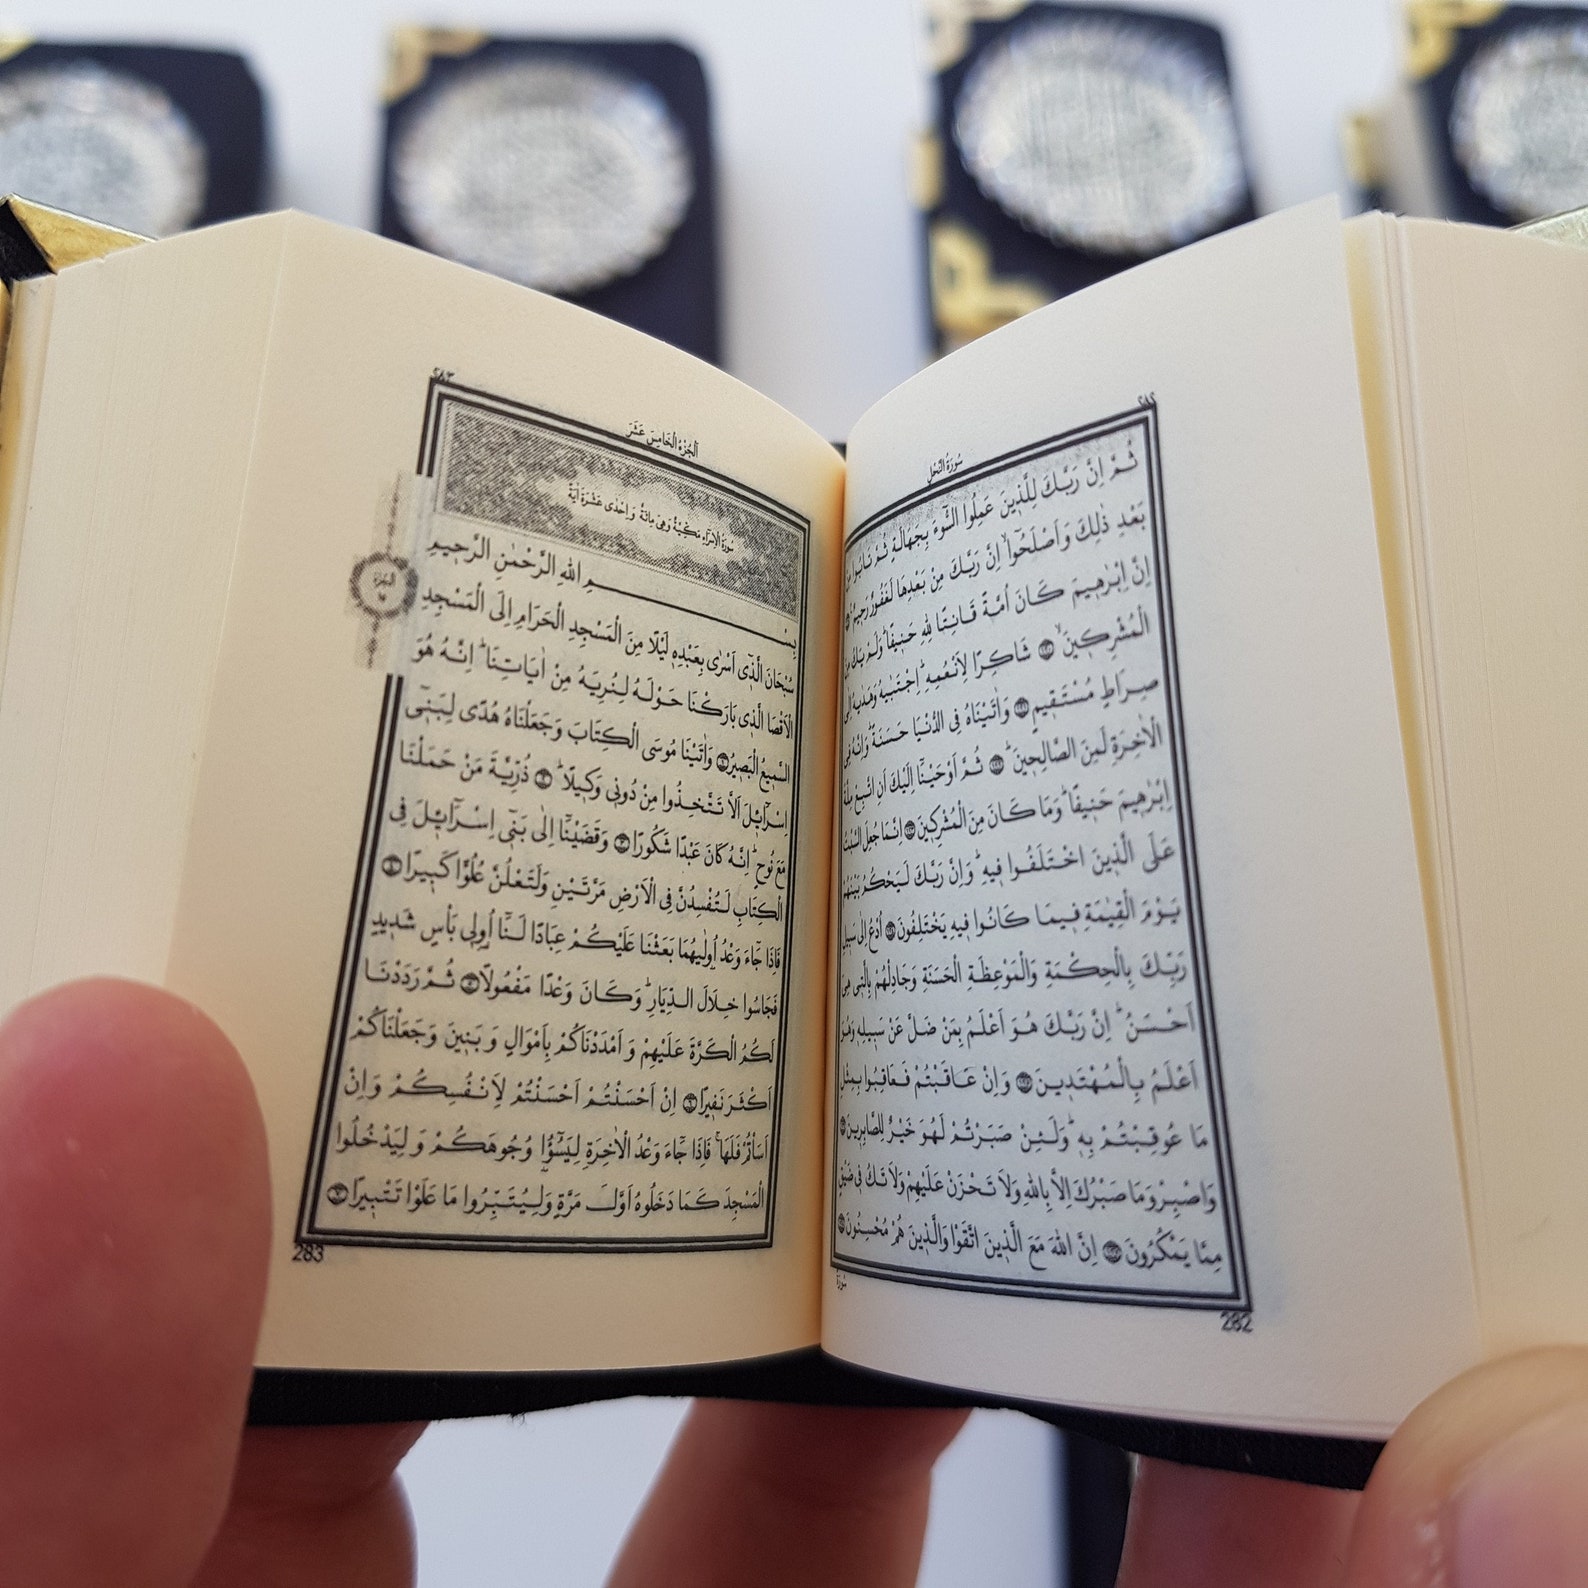 ٢٨٢
سُورَةُ النَّحْلِ
ثُمَّ اِنَّ رَبَّكَ لِلَّذ۪ينَ عَمِلُوا السُّٓوءَ بِجَهَالَةٍ ثُمَّ تَابُوا مِنْ
بَعْدِ ذٰلِكَ وَاَصْلَحُٓوا اِنَّ رَبَّكَ مِنْ بَعْدِهَا لَغَفُورٌ رَح۪يمٌ
اِنَّ اِبْرٰه۪يمَ كَانَ اُمَّةً قَانِتًا لِلّٰهِ حَن۪يفًا وَلَمْ يَكُ مِنَ
الْمُشْرِك۪ينَ شَاكِرًا لِاَنْعُمِهِ اِجْتَبٰيهُ وَهَدٰيهُ اِلٰى
صِرَاطٍ مُسْتَق۪يمٍ وَاٰتَيْنَاهُ فِي الدُّنْيَا حَسَنَةً وَاِنَّهُ فِي
الْاٰخِرَةِ لَمِنَ الصَّالِح۪ينَ ثُمَّ اَوْحَيْنَٓا اِلَيْكَ اَنِ اتَّبِعْ مِلَّةَ
اِبْرٰه۪يمَ حَن۪يفًا وَمَا كَانَ مِنَ الْمُشْرِك۪ينَ اِنَّمَا جُعِلَ السَّبْتُ
عَلَى الَّذ۪ينَ اخْتَلَفُوا ف۪يهِ وَاِنَّ رَبَّكَ لَيَحْكُمُ بَيْنَهُمْ
يَوْمَ الْقِيٰمَةِ ف۪يمَا كَانُوا ف۪يهِ يَخْتَلِفُونَ اُدْعُ اِلٰى سَب۪يلِ
رَبِّكَ بِالْحِكْمَةِ وَالْمَوْعِظَةِ الْحَسَنَةِ وَجَادِلْهُمْ بِالَّت۪ي هِيَ
اَحْسَنُ اِنَّ رَبَّكَ هُوَ اَعْلَمُ بِمَنْ ضَلَّ عَنْ سَب۪يلِه۪ وَهُوَ
اَعْلَمُ بِالْمُهْتَد۪ينَ وَاِنْ عَاقَبْتُمْ فَعَاقِبُوا بِمِثْلِ
مَا عُوقِبْتُمْ بِه۪ وَلَئِنْ صَبَرْتُمْ لَهُوَ خَيْرٌ لِلصَّابِر۪ينَ
وَاصْبِرْ وَمَا صَبْرُكَ اِلَّا بِاللّٰهِ وَلَا تَحْزَنْ عَلَيْهِمْ وَلَا تَكُ ف۪ي ضَيْقٍ
مِمَّا يَمْكُرُونَ اِنَّ اللّٰهَ مَعَ الَّذ۪ينَ اتَّقَوْا وَالَّذ۪ينَ هُمْ مُحْسِنُونَ
سُورَةُ
282
٢٨٣
اَلْجُزْءُ الْخَامِسَ عَشَرَ
سُورَةُ الْاِسْرَاءِ مَكِّيَّةٌ وَهِيَ مِائَةٌ وَاِحْدٰى عَشْرَةَ اٰيَةً
بِسْمِ اللّٰهِ الرَّحْمٰنِ الرَّح۪يمِ
سُبْحَانَ الَّذ۪ٓي اَسْرٰى بِعَبْدِه۪ لَيْلًا مِنَ الْمَسْجِدِ الْحَرَامِ اِلَى الْمَسْجِدِ
الْاَقْصَا الَّذ۪ي بَارَكْنَا حَوْلَهُ لِنُرِيَهُ مِنْ اٰيَاتِنَا اِنَّهُ هُوَ
السَّم۪يعُ الْبَص۪يرُ وَاٰتَيْنَا مُوسَى الْكِتَابَ وَجَعَلْنَاهُ هُدًى لِبَن۪ٓي
اِسْرَٓائ۪لَ اَلَّا تَتَّخِذُوا مِنْ دُون۪ي وَك۪يلًا ذُرِّيَّةَ مَنْ حَمَلْنَا
مَعَ نُوحٍ اِنَّهُ كَانَ عَبْدًا شَكُورًا وَقَضَيْنَٓا اِلٰى بَن۪ٓي اِسْرَٓائ۪لَ فِي
الْكِتَابِ لَتُفْسِدُنَّ فِي الْاَرْضِ مَرَّتَيْنِ وَلَتَعْلُنَّ عُلُوًّا كَب۪يرًا
فَاِذَا جَٓاءَ وَعْدُ اُو۫لٰيهُمَا بَعَثْنَا عَلَيْكُمْ عِبَادًا لَنَٓا اُو۬ل۪ي بَأْسٍ شَد۪يدٍ
فَجَاسُوا خِلَالَ الدِّيَارِ وَكَانَ وَعْدًا مَفْعُولًا ثُمَّ رَدَدْنَا
لَكُمُ الْكَرَّةَ عَلَيْهِمْ وَاَمْدَدْنَاكُمْ بِاَمْوَالٍ وَبَن۪ينَ وَجَعَلْنَاكُمْ
اَكْثَرَ نَف۪يرًا اِنْ اَحْسَنْتُمْ اَحْسَنْتُمْ لِاَنْفُسِكُمْ وَاِنْ
اَسَأْتُمْ فَلَهَا فَاِذَا جَٓاءَ وَعْدُ الْاٰخِرَةِ لِيَسُٓؤُ۫ا وُجُوهَكُمْ وَلِيَدْخُلُوا
الْمَسْجِدَ كَمَا دَخَلُوهُ اَوَّلَ مَرَّةٍ وَلِيُتَبِّرُوا مَا عَلَوْا تَتْب۪يرًا
اَلْجُزْءُ
١٥
283